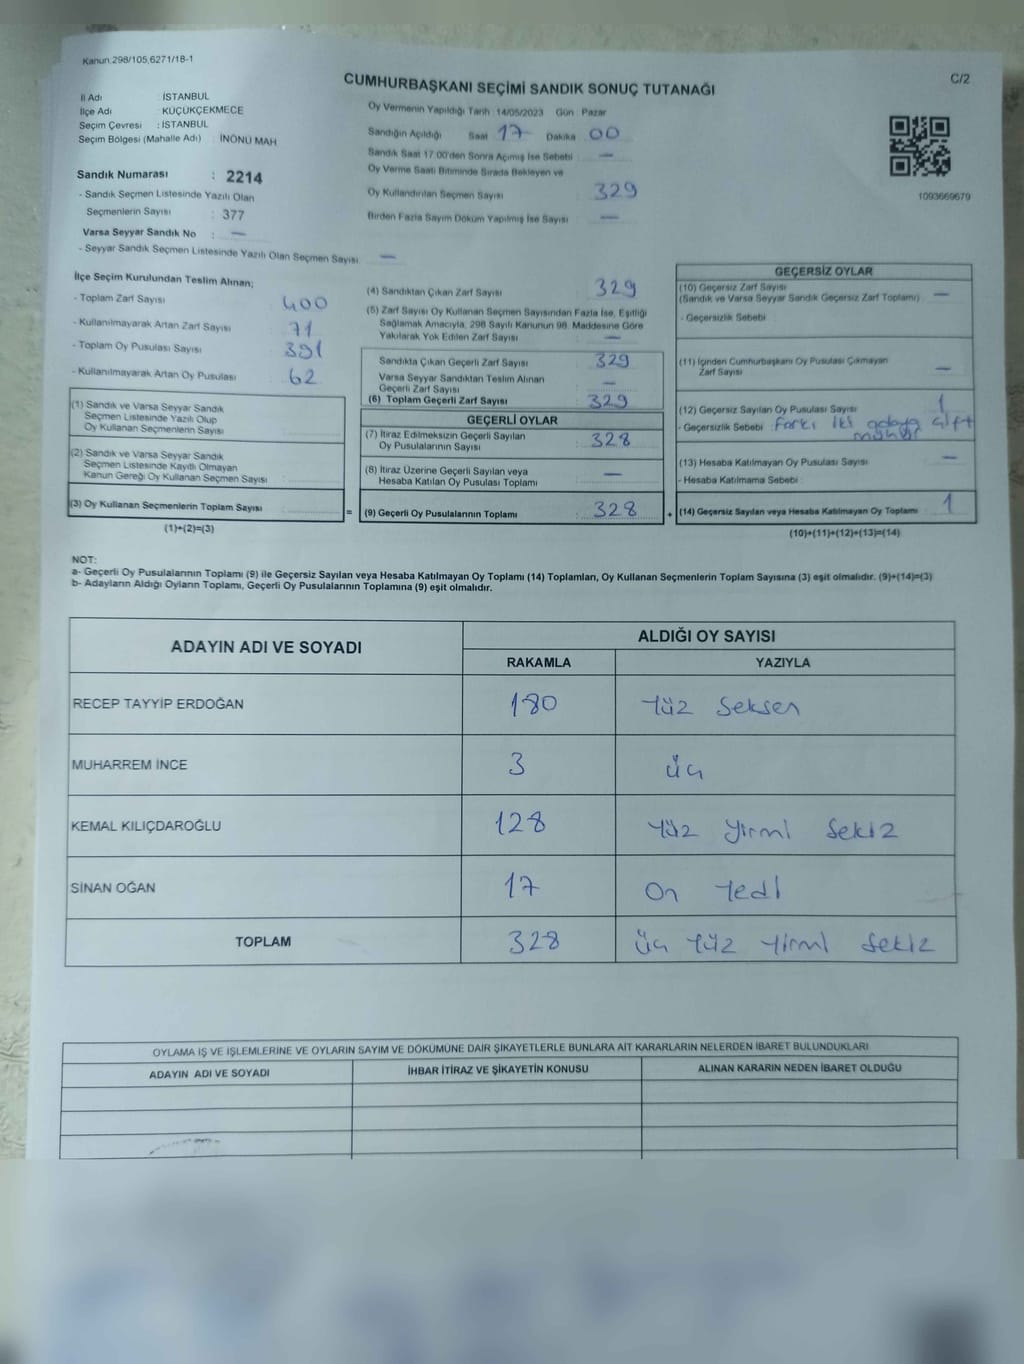 Kanun.298/105,6271/18-1
C/2
CUMHURBAŞKANI SEÇİMİ SANDIK SONUÇ TUTANAĞI
İl Adı : İSTANBUL
İlçe Adı : KÜÇÜKÇEKMECE
Seçim Çevresi : İSTANBUL
Seçim Bölgesi (Mahalle Adı) : İNÖNÜ MAH
Sandık Numarası : 2214
- Sandık Seçmen Listesinde Yazılı Olan
Seçmenlerin Sayısı : 377
Varsa Seyyar Sandık No : —
- Seyyar Sandık Seçmen Listesinde Yazılı Olan Seçmen Sayısı: —
Oy Vermenin Yapıldığı Tarih : 14/05/2023 Gün : Pazar
Sandığın Açıldığı Saat 17 Dakika : 00
Sandık Saat 17:00'den Sonra Açımış İse Sebebi : —
Oy Verme Saati Bitiminde Sırada Bekleyen ve
Oy Kullandırılan Seçmen Sayısı : 329
Birden Fazla Sayım Döküm Yapılmış İse Sayısı : —
1093669679
İlçe Seçim Kurulundan Teslim Alınan;
- Toplam Zarf Sayısı : 400
- Kullanılmayarak Artan Zarf Sayısı : 71
- Toplam Oy Pusulası Sayısı : 391
- Kullanılmayarak Artan Oy Pusulası : 62
(1) Sandık ve Varsa Seyyar Sandık
Seçmen Listesinde Yazılı Olup
Oy Kullanan Seçmenlerin Sayısı :
(2) Sandık ve Varsa Seyyar Sandık
Seçmen Listesinde Kayıtlı Olmayan
Kanun Gereği Oy Kullanan Seçmen Sayısı :
(3) Oy Kullanan Seçmenlerin Toplam Sayısı :
(1)+(2)=(3)
=
(4) Sandıktan Çıkan Zarf Sayısı : 329
(5) Zarf Sayısı Oy Kullanan Seçmen Sayısından Fazla İse, Eşitliği
Sağlamak Amacıyla, 298 Sayılı Kanunun 98. Maddesine Göre
Yakılarak Yok Edilen Zarf Sayısı : —
Sandıkta Çıkan Geçerli Zarf Sayısı : 329
Varsa Seyyar Sandıktan Teslim Alınan
Geçerli Zarf Sayısı : —
(6) Toplam Geçerli Zarf Sayısı : 329
GEÇERLİ OYLAR
(7) İtiraz Edilmeksizin Geçerli Sayılan
Oy Pusulalarının Sayısı : 328
(8) İtiraz Üzerine Geçerli Sayılan veya
Hesaba Katılan Oy Pusulası Toplamı : —
(9) Geçerli Oy Pusulalarının Toplamı : 328
+
GEÇERSİZ OYLAR
(10) Geçersiz Zarf Sayısı
(Sandık ve Varsa Seyyar Sandık Geçersiz Zarf Toplamı) : —
- Geçersizlik Sebebi :
(11) İçinden Cumhurbaşkanı Oy Pusulası Çıkmayan
Zarf Sayısı : —
(12) Geçersiz Sayılan Oy Pusulası Sayısı : 1
- Geçersizlik Sebebi : Farkı iki adaya çift
mühür
(13) Hesaba Katılmayan Oy Pusulası Sayısı : —
- Hesaba Katılmama Sebebi :
(14) Geçersiz Sayılan veya Hesaba Katılmayan Oy Toplamı : 1
(10)+(11)+(12)+(13)=(14)
NOT:
a- Geçerli Oy Pusulalarının Toplamı (9) ile Geçersiz Sayılan veya Hesaba Katılmayan Oy Toplamı (14) Toplamları, Oy Kullanan Seçmenlerin Toplam Sayısına (3) eşit olmalıdır. (9)+(14)=(3)
b- Adayların Aldığı Oyların Toplamı, Geçerli Oy Pusulalarının Toplamına (9) eşit olmalıdır.
ADAYIN ADI VE SOYADI ALDIĞI OY SAYISI
RAKAMLA YAZIYLA
RECEP TAYYİP ERDOĞAN 180 Yüz Seksen
MUHARREM İNCE 3 üç
KEMAL KILIÇDAROĞLU 128 Yüz Yirmi Sekiz
SİNAN OĞAN 17 On Yedi
TOPLAM 328 üç Yüz Yirmi Sekiz
OYLAMA İŞ VE İŞLEMLERİNE VE OYLARIN SAYIM VE DÖKÜMÜNE DAİR ŞİKAYETLERLE BUNLARA AİT KARARLARIN NELERDEN İBARET BULUNDUKLARI
ADAYIN ADI VE SOYADI İHBAR İTİRAZ VE ŞİKAYETİN KONUSU ALINAN KARARIN NEDEN İBARET OLDUĞU